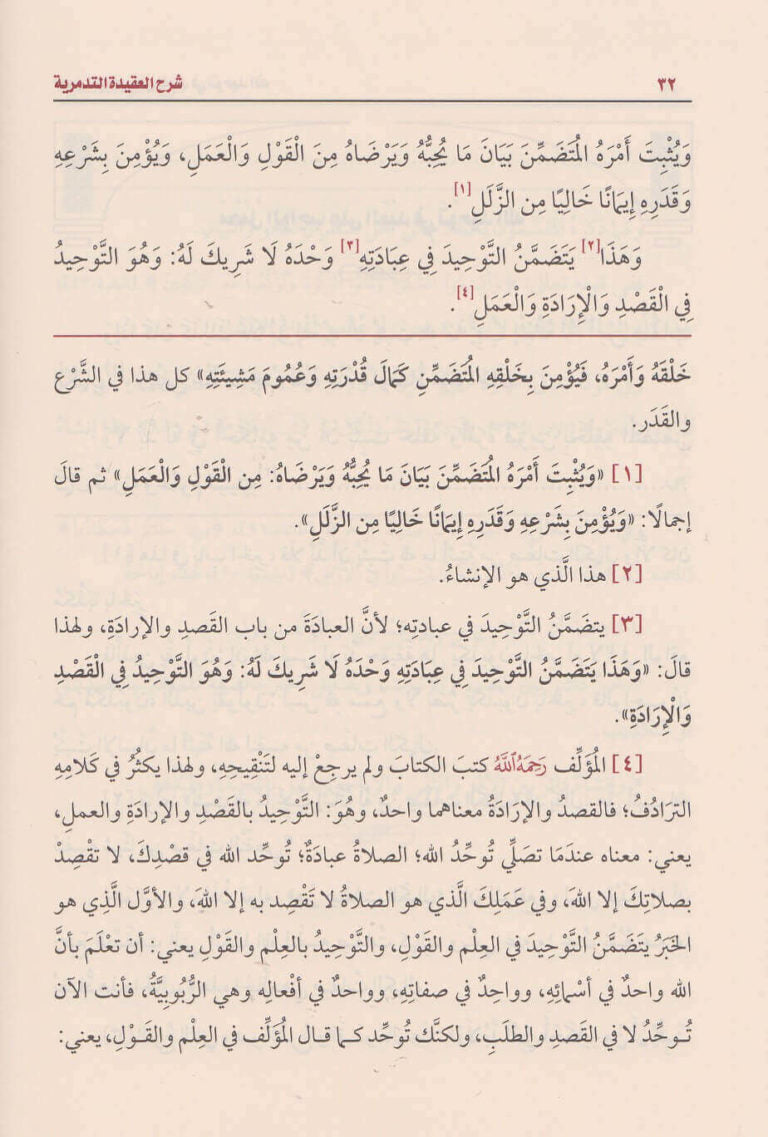 ٣٢ شرح العقيدة التدمرية
وَيُثْبِتَ أَمْرَهُ الْمُتَضَمِّنَ بَيَانَ مَا يُحِبُّهُ وَيَرْضَاهُ مِنَ الْقَوْلِ وَالْعَمَلِ، وَيُؤْمِنَ بِشَرْعِهِ
وَقَدَرِهِ إِيمَانًا خَالِيًا مِن الزَّلَلِ[١].
وَهَذَا[٢] يَتَضَمَّنُ التَّوْحِيدَ فِي عِبَادَتِهِ[٣] وَحْدَهُ لَا شَرِيكَ لَهُ: وَهُوَ التَّوْحِيدُ
فِي الْقَصْدِ وَالْإِرَادَةِ وَالْعَمَلِ[٤].
خَلْقَهُ وَأَمْرَهُ، فَيُؤْمِنَ بِخَلْقِهِ الْمُتَضَمِّنِ كَمَالَ قُدْرَتِهِ وَعُمُومَ مَشِيئَتِهِ» كل هذا في الشَّرْع
والقَدَر.
[١] «وَيُثْبِتَ أَمْرَهُ الْمُتَضَمِّنَ بَيَانَ مَا يُحِبُّهُ وَيَرْضَاهُ: مِن الْقَوْلِ وَالْعَمَلِ» ثم قالَ
إجمالًا: «وَيُؤْمِنَ بِشَرْعِهِ وَقَدَرِهِ إِيمَانًا خَالِيًا مِنَ الزَّلَلِ».
[٢] هذا الَّذي هو الإنشاءُ.
[٣] يتضَمَّنُ التَّوْحِيدَ في عبادتِه؛ لأنَّ العبادَةَ من باب القَصدِ والإرادَةِ، ولهذا
قالَ: «وَهَذَا يَتَضَمَّنُ التَّوْحِيدَ فِي عِبَادَتِهِ وَحْدَهُ لَا شَرِيكَ لَهُ: وَهُوَ التَّوْحِيدُ فِي الْقَصْدِ
وَالْإِرَادَةِ».
[٤] الْمُؤَلِّف رَحِمَهُ اللَّهُ كتبَ الكتابَ ولم يرجِعْ إليه لتَنْقِيحِهِ، ولهذا يكثُرُ في كَلامِهِ
الترَادُفُ؛ فالقصدُ والإرَادَةُ معناهما واحدٌ، وهُوَ: التَّوْحِيدُ بالقَصْدِ والإرادَةِ والعملِ،
يعني: معناه عندَمَا تصَلِّي تُوحِّدُ الله؛ الصلاةُ عبادَةٌ؛ تُوحِّد الله في قصْدِكَ، لا تقْصِدْ
بصلاتِكَ إلا اللهَ، وفي عَمَلِكَ الَّذي هو الصلاةُ لا تَقْصِد به إلا اللهَ، والأوَّل الَّذِي هو
الخَبَرُ يتَضَمَّنُ التَّوْحِيدَ في العِلْم والقَوْلِ، والتَّوْحِيدُ بالعِلْم والقَوْلِ يعني: أن تعْلَمَ بأنَّ
الله واحدٌ في أسْمائِهِ، وواحِدٌ في صفاتِهِ، وواحدٌ في أفْعالِه وهي الرُّبُوبيَّةُ، فأنت الآن
تُوحِّدُ لا في القَصدِ والطلَبِ، ولكنَّك تُوحِّد كما قال الْمُؤَلِّف في العِلْم والقَوْلِ، يعني: